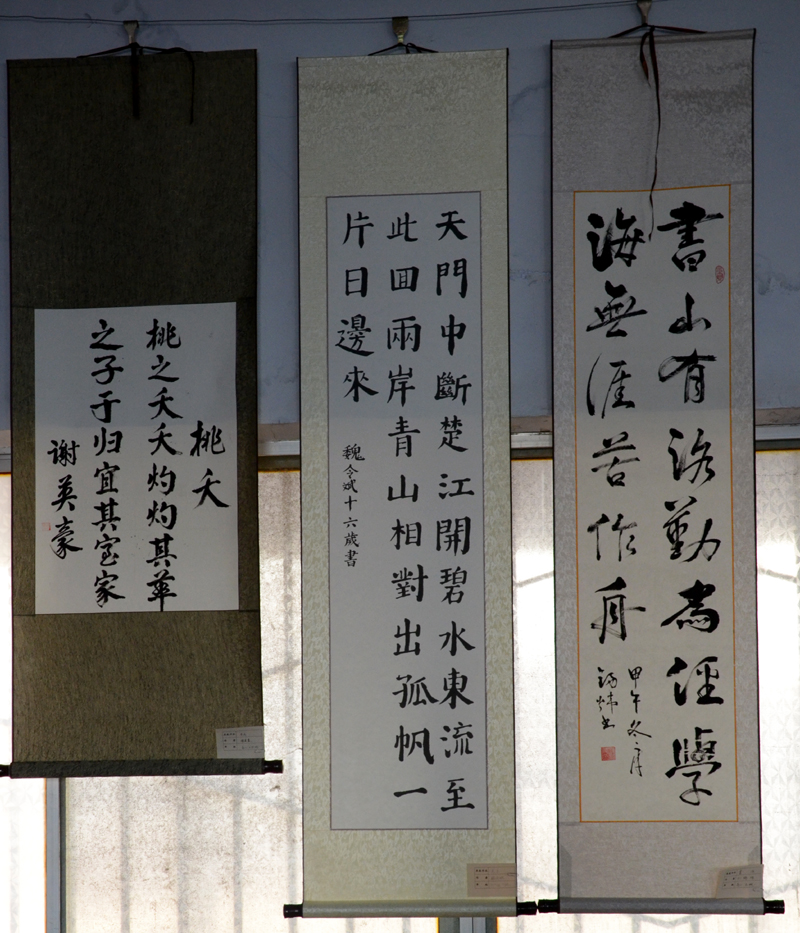 書山有路勤為徑學
海無涯苦作舟
甲午冬月
天門中斷楚江開碧水東流至
此囬兩岸青山相對出孤帆一
片日邊來
魏令斌十六歲書
桃夭
桃之夭夭灼灼其華
之子于归宜其室家
谢英豪